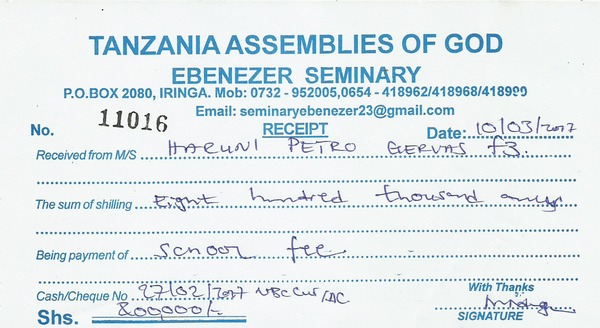 TANZANIA ASSEMBLIES OF GOD
EBENEZER SEMINARY
P.O.BOX 2080, IRINGA. Mob: 0732 - 952005,0654 - 418962/418968/418990
Email: seminaryebenezer23@gmail.com
No. 11016 RECEIPT Date: 10/03/2017
Received from M/S HARUNI PETRO GERVAS f3.
The sum of shilling Eight hundred thousand only
Being payment of School fee
Cash/Cheque No 27/02/2017 NBC With Thanks
Shs. 800,000/- SIGNATURE